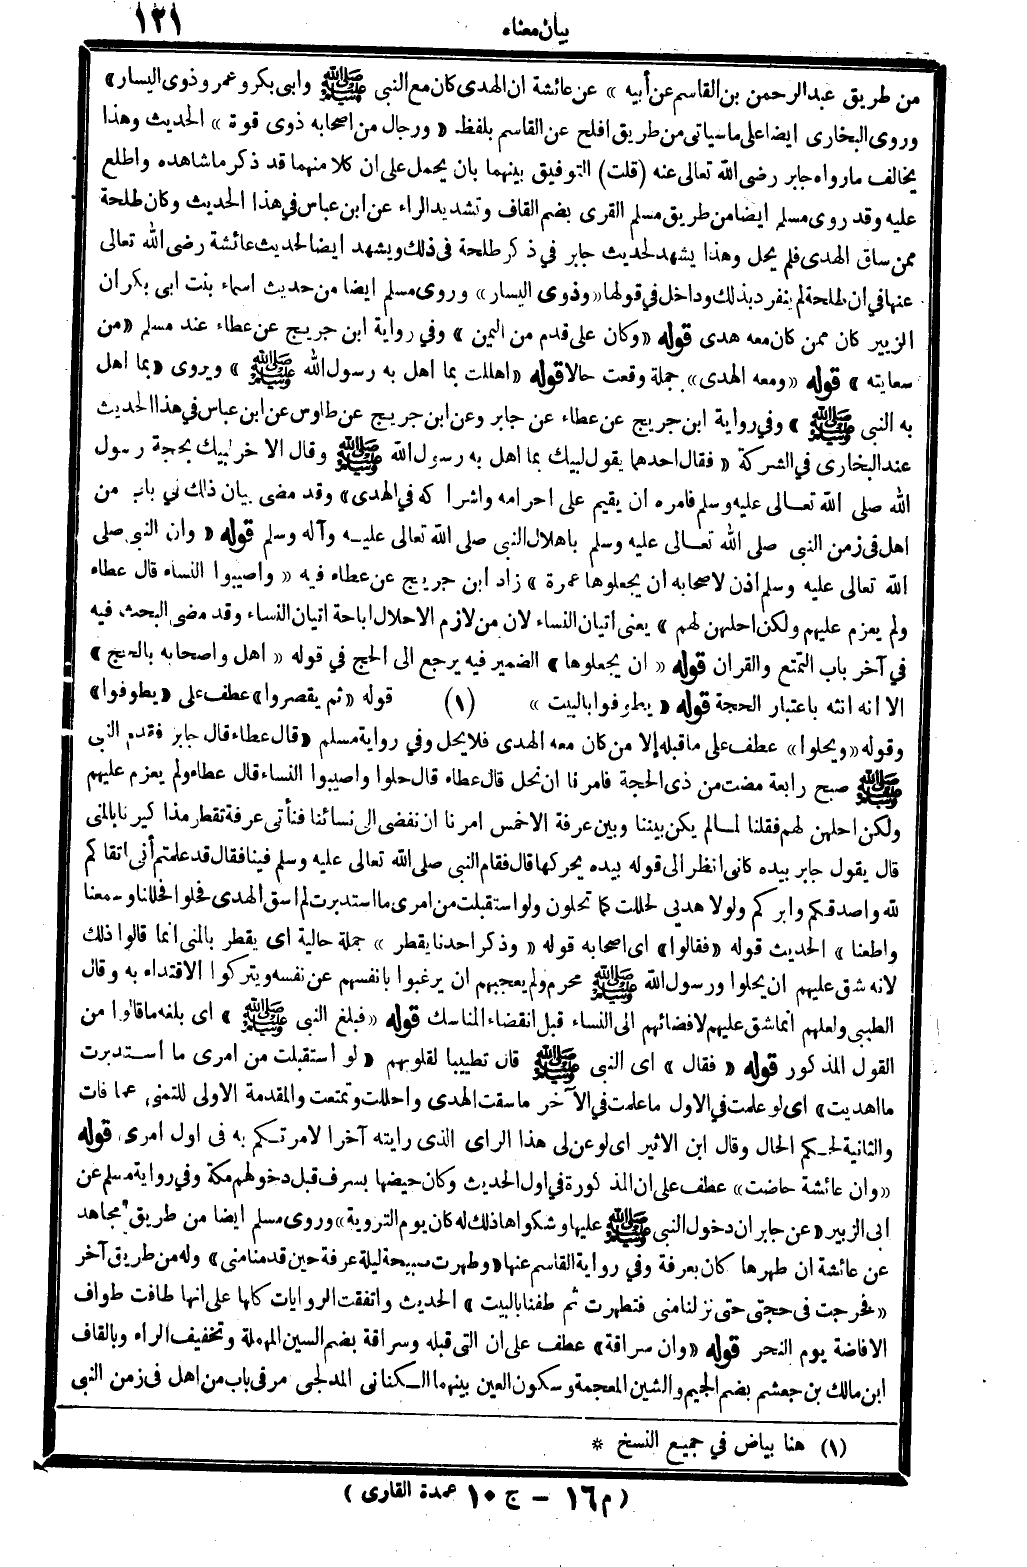 بيان معناه
١٢١
من طريق عبدالرحمن بن القاسم عن أبيه » عن عائشة ان الهدى كان مع النبى ﷺ وابى بكر وعمر وذوى اليسار »
وروى البخارى ايضا على ماسياتى من طريق افلح عن القاسم بلفظ « ورجال من اصحابه ذوى قوة » الحديث وهذا
يخالف مارواه جابر رضى الله تعالى عنه (قلت) التوفيق بينهما بان يحمل على ان كلا منهما قد ذكر ماشاهده واطلع
عليه وقد روى مسلم ايضا من طريق مسلم القرى بضم القاف وتشديد الراء عن ابن عباس في هذا الحديث وكان طلحة
ممن ساق الهدى فلم يحل وهذا يشهد لحديث جابر في ذكر طلحة فى ذلك ويشهد ايضا لحديث عائشة رضى الله تعالى
عنها في ان طلحة لم ينفرد بذلك وداخل في قولها «وذوى اليسار» وروى مسلم ايضا من حديث اسماء بنت ابى بكر ان
الزبير كان ممن كان معه هدى قوله «وكان على قدم من اليمن » وفي رواية ابن جريج عن عطاء عند مسلم «من
سعايته » قوله «ومعه الهدى» جملة وقعت حالا قوله «اهللت بما اهل به رسول الله ﷺ » ويروى «بما اهل
به النبى ﷺ » وفي رواية ابن جريج عن عطاء عن جابر وعن ابن جريج عن طاوس عن ابن عباس في هذا الحديث
عند البخارى في الشركة « فقال احدهما يقول لبيك بما اهل به رسول الله ﷺ وقال الاخر لبيك بحجة رسول
الله صلى الله تعالى عليه وسلم فامره ان يقيم على احرامه واشركه في الهدى» وقد مضى بيان ذلك في باب من
اهل فى زمن النبى صلى الله تعالى عليه وسلم باهلال النبى صلى الله تعالى عليه وآله وسلم قوله « وان النبى صلى
الله تعالى عليه وسلم اذن لاصحابه ان يجعلوها عمرة » زاد ابن جريج عن عطاء فيه « واصيبوا النساء قال عطاء
ولم يعزم عليهم ولكن احلهن لهم » يعنى اتيان النساء لان من لازم الاحلال اباحة اتيان النساء وقد مضى البحث فيه
في آخر باب التمتع والقران قوله « ان يجعلوها » الضمير فيه يرجع الى الحج في قوله « اهل واصحابه بالحج »
الا انه انثه باعتبار الحجة قوله « يطوفوا بالبيت » (١) قوله «ثم يقصروا» عطف على «يطوفوا»
وقوله «ويحلوا» عطف على ماقبله إلا من كان معه الهدى فلايحل وفي رواية مسلم «قال عطاء قال جابر فقدم النبى
ﷺ صبح رابعة مضت من ذى الحجة فامرنا ان نحل قال عطاء قال حلوا واصيبوا النساء قال عطاء ولم يعزم عليهم
ولكن احلهن لهم فقلنا لمالم يكن بيننا وبين عرفة الاخمس امرنا ان نفضى الى نسائنا فنأتى عرفة تقطر مذاكيرنا بالمنى
قال يقول جابر بيده كانى انظر الى قوله بيده يحركها قال فقام النبى صلى الله تعالى عليه وسلم فينا فقال قد علمتم أنى اتقاكم
لله واصدقكم وابركم ولولا هديى لحللت كما تحلون ولو استقبلت من امرى مااستدبرت لم اسق الهدى فحلوا فحللنا وسمعنا
واطعنا » الحديث قوله «فقالوا» اى اصحابه قوله « وذكر احدنا يقطر » جملة حالية اى يقطر بالمنى انما قالوا ذلك
لانه شق عليهم ان يحلوا ورسول الله ﷺ محرم ولم يعجبهم ان يرغبوا بانفسهم عن نفسه ويتركوا الاقتداء به وقال
الطيبى ولعلهم انما شق عليهم لافضائهم الى النساء قبل انقضاء المناسك قوله «فبلغ النبى ﷺ » اى بلغه ماقالوا من
القول المذكور قوله « فقال » اى النبى ﷺ قال تطييبا لقلوبهم « لو استقبلت من امرى ما استدبرت
مااهديت» اى لو علمت في الاول ماعلمت في الآخر ماسقت الهدى واحللت وتمتعت والمقدمة الاولى للتمنى عما فات
والثانية لحكم الحال وقال ابن الاثير اى لو عن لى هذا الراى الذى رايته آخرا لامرتكم به فى اول امرى قوله
«وان عائشة حاضت» عطف على ان المذكورة في اول الحديث وكان حيضها بسرف قبل دخولهم مكة وفي رواية مسلم عن
ابى الزبير «عن جابر ان دخول النبى ﷺ عليها وشكواها ذلك له كان يوم التروية» وروى مسلم ايضا من طريق مجاهد
عن عائشة ان طهرها كان بعرفة وفي رواية القاسم عنها «وطهرت صبيحة ليلة عرفة حين قدمنا منى» وله من طريق آخر
«فخرجت فى حجتى حتى نزلنا منى فتطهرت ثم طفنا بالبيت » الحديث واتفقت الروايات كلها على انها طافت طواف
الافاضة يوم النحر قوله «وان سراقة» عطف على ان التى قبله وسراقة بضم السين المهملة وتخفيف الراء وبالقاف
ابن مالك بن جعشم بضم الجيم والشين المعجمة وسكون العين بينهما الكنانى المدلجى مر فى باب من اهل فى زمن النبى
(١) هنا بياض في جميع النسخ *
(م ١٦ – ج ١٠ عمدة القارى)